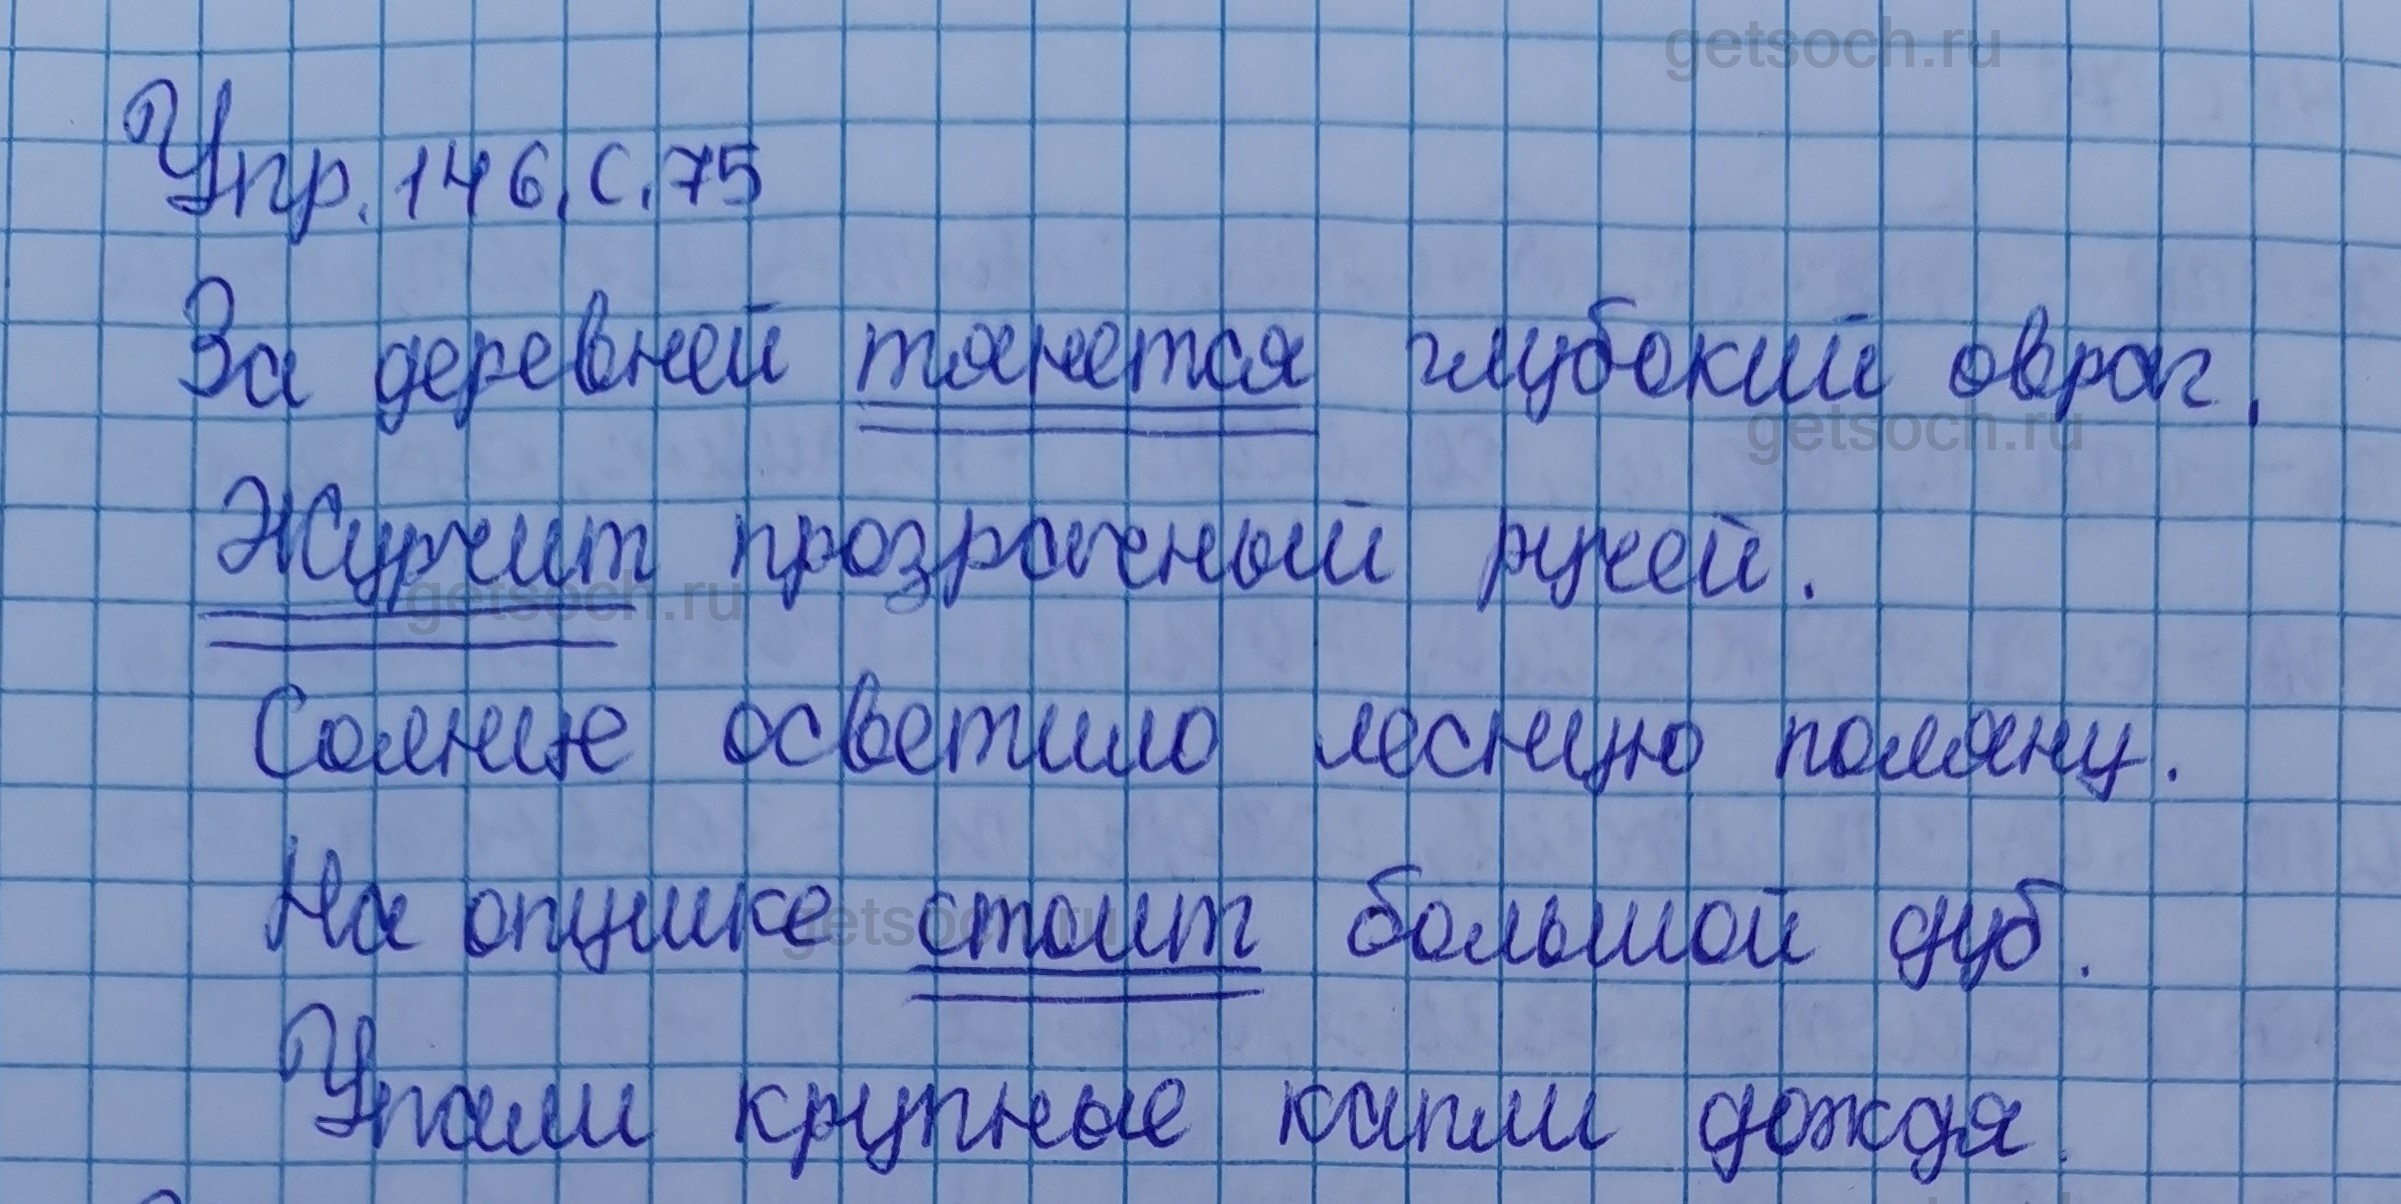 getsoch.ru
Упр. 146, с. 75
За деревней тянется глубокий овраг.
getsoch.ru
Журчит прозрачный ручей.
getsoch.ru
Солнце осветило лесную поляну.
На опушке стоит большой дуб.
getsoch.ru
Упали крупные капли дождя.